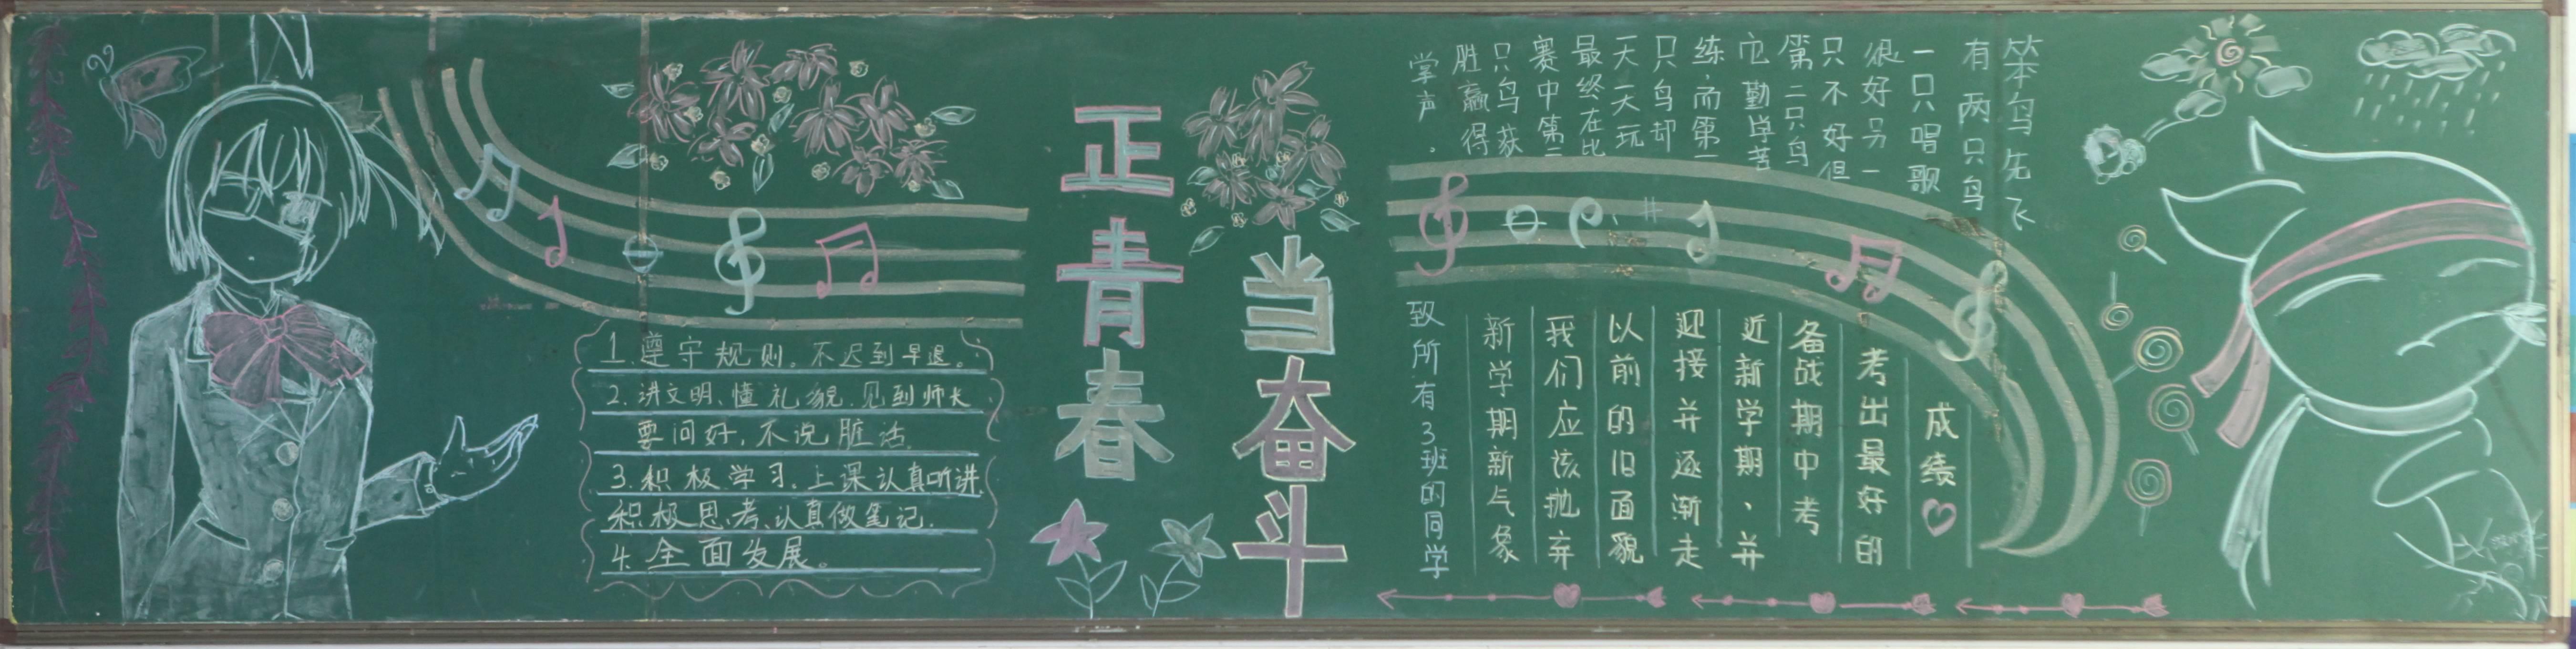 正青春
当奋斗
1.遵守规则。不迟到早退。
2.讲文明、懂礼貌.见到师长
要问好,不说脏话.
3.积极学习、上课认真听讲
积极思考、认真做笔记.
4.全面发展。
笨鸟先飞
有两只鸟
一只唱歌
很好另一
只不好但
第二只鸟
它勤学苦
练,而第一
只鸟却
天天玩
最终在比
赛中第二
只鸟获
胜赢得
掌声.
致所有3班的同学
新学期新气象
我们应该抛弃
以前的旧面貌
迎接并逐渐走
近新学期、并
备战期中考
考出最好的
成绩